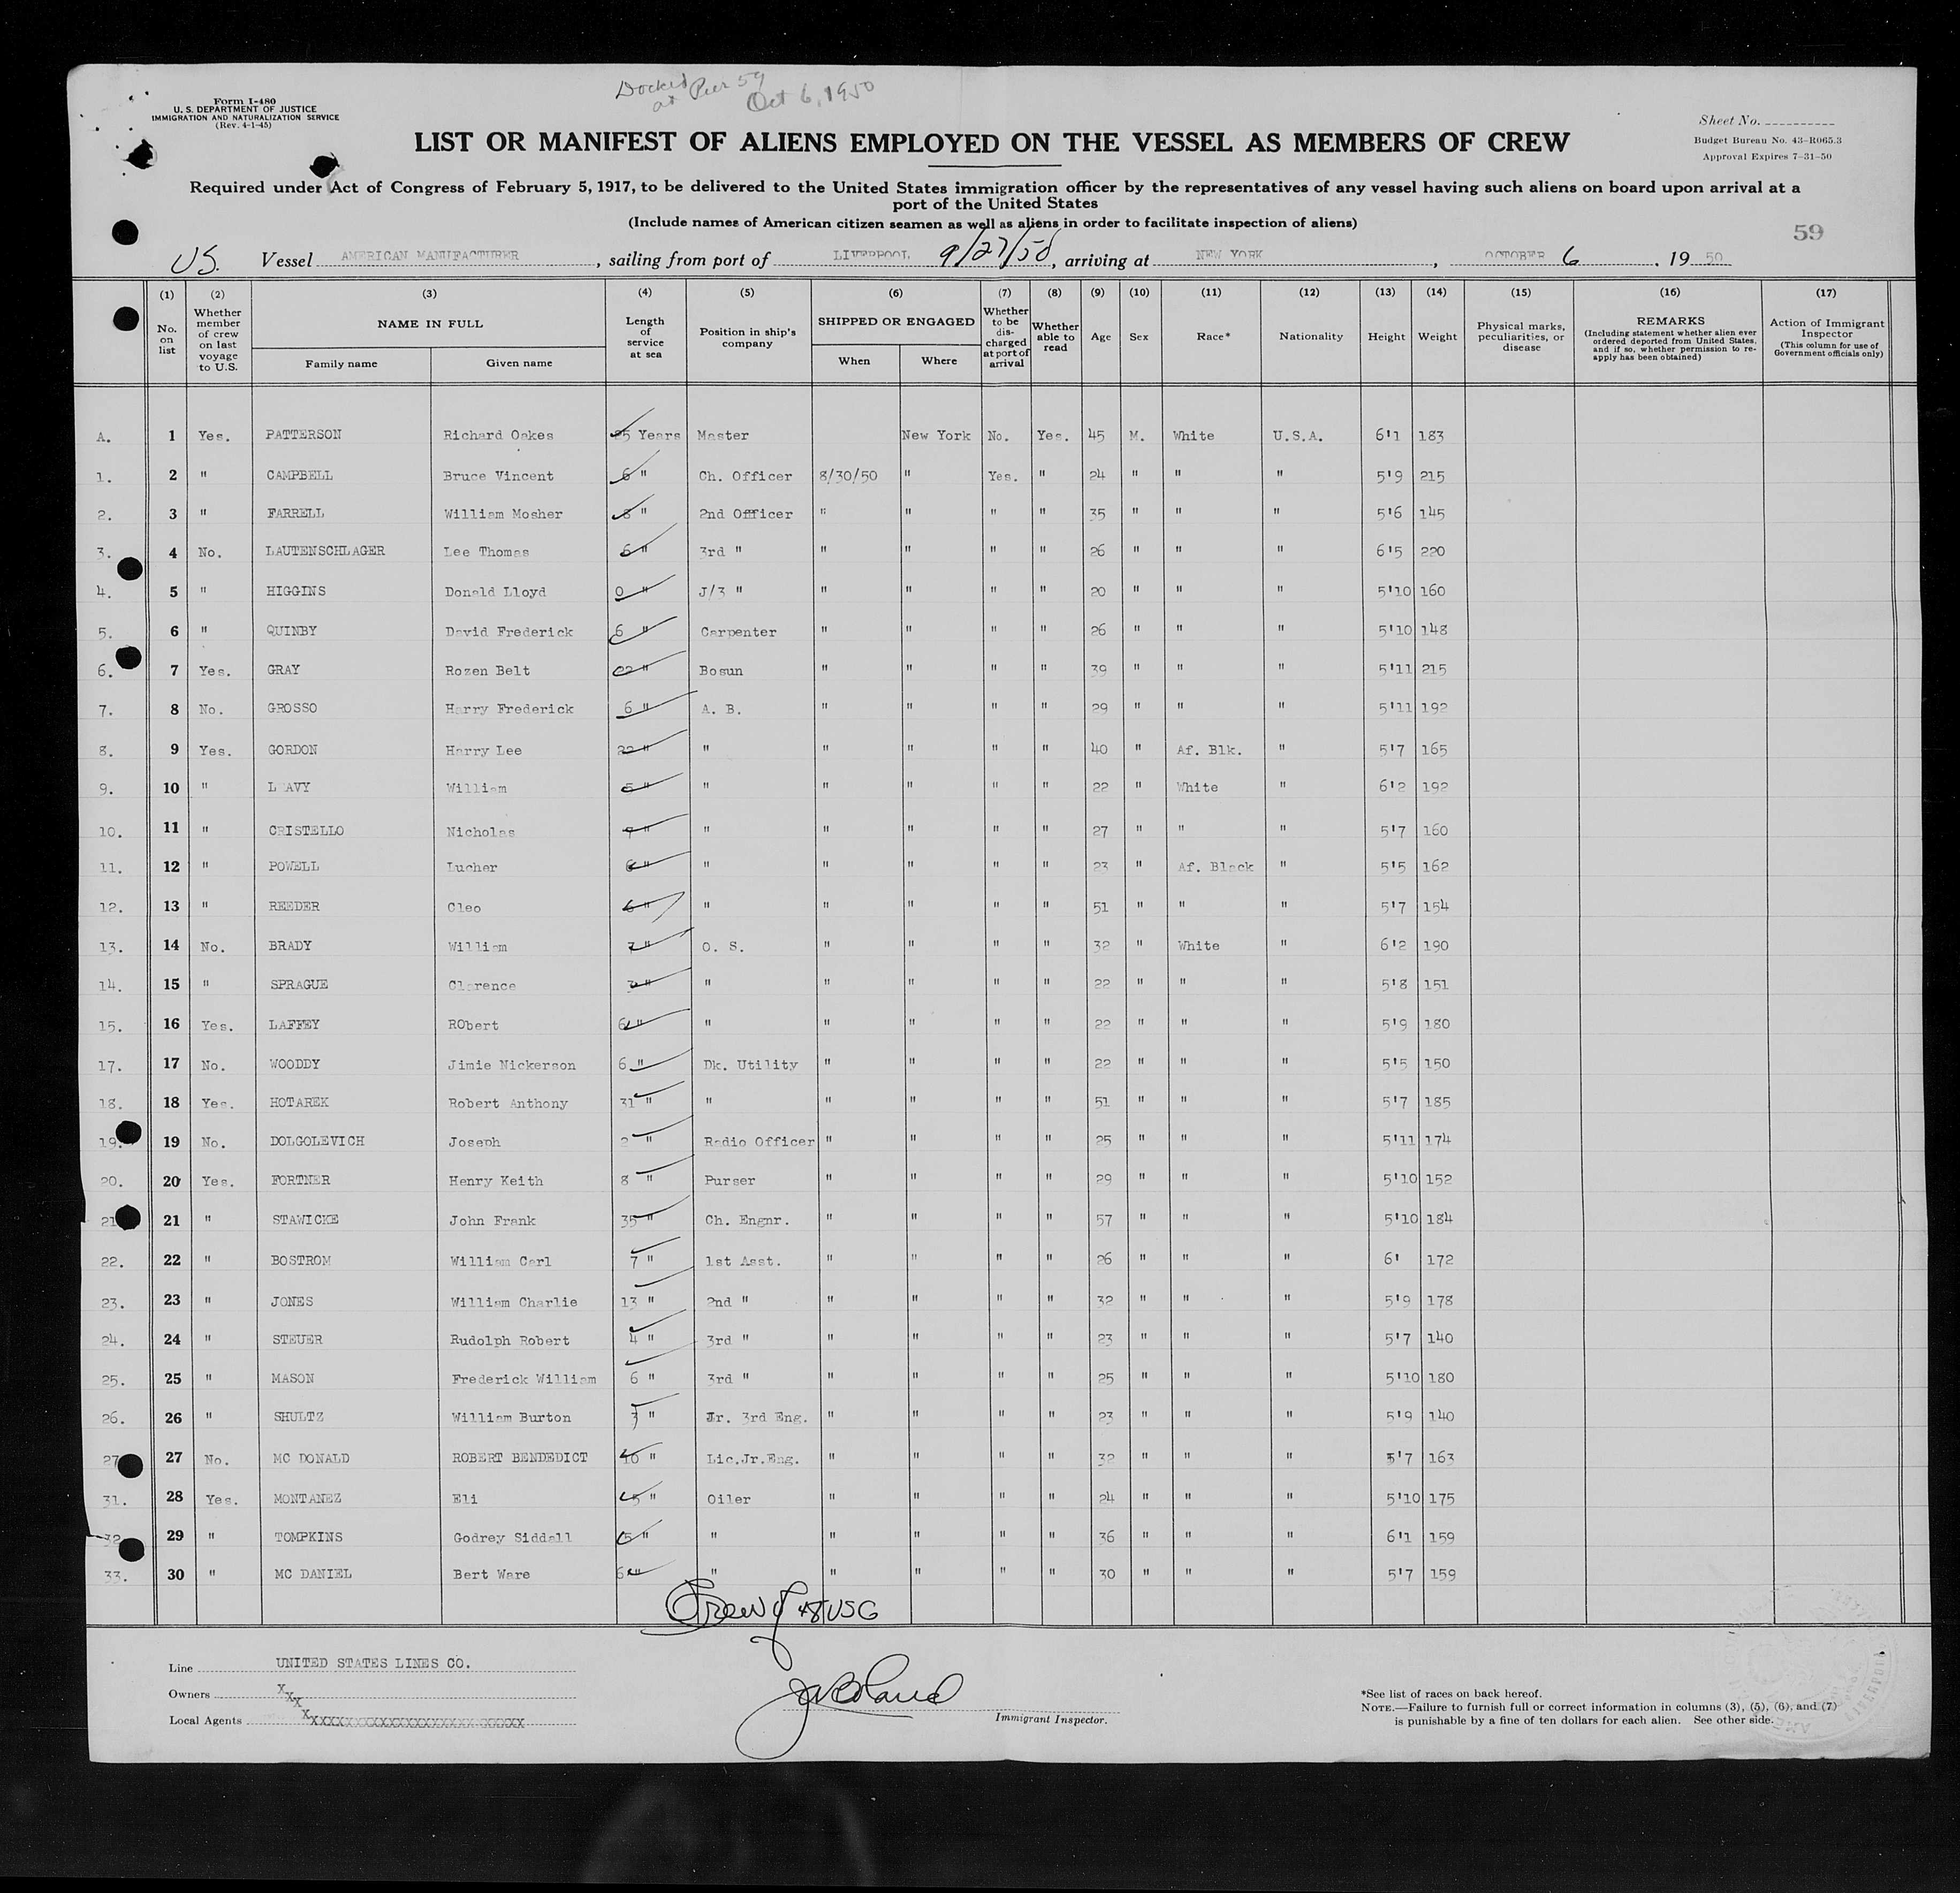 Docked at Pier 59
Oct 6, 1950
Form I-480
U. S. DEPARTMENT OF JUSTICE
IMMIGRATION AND NATURALIZATION SERVICE
(Rev. 4-1-45)
Sheet No.
Budget Bureau No. 43-R065.3
Approval Expires 7-31-50
LIST OR MANIFEST OF ALIENS EMPLOYED ON THE VESSEL AS MEMBERS OF CREW
Required under Act of Congress of February 5, 1917, to be delivered to the United States immigration officer by the representatives of any vessel having such aliens on board upon arrival at a
port of the United States
(Include names of American citizen seamen as well as aliens in order to facilitate inspection of aliens)
59
US. Vessel AMERICAN MANUFACTURER, sailing from port of LIVERPOOL 9/27/50, arriving at NEW YORK, OCTOBER 6, 19 50
(1) (2) (3) (4) (5) (6) (7) (8) (9) (10) (11) (12) (13) (14) (15) (16) (17)
No. on list
Whether member of crew on last voyage to U.S.
NAME IN FULL
Family name
Given name
Length of service at sea
Position in ship's company
SHIPPED OR ENGAGED
When
Where
Whether to be discharged at port of arrival
Whether able to read
Age
Sex
Race*
Nationality
Height
Weight
Physical marks, peculiarities, or disease
REMARKS
(Including statement whether alien ever ordered deported from United States, and if so, whether permission to reapply has been obtained)
Action of Immigrant Inspector
(This column for use of Government officials only)
A. 1 Yes. PATTERSON Richard Oakes 25 Years Master New York No. Yes. 45 M. White U.S.A. 6'1 183
1. 2 " CAMPBELL Bruce Vincent 6 " Ch. Officer 8/30/50 " Yes. " 24 " " " 5'9 215
2. 3 " FARRELL William Mosher 8 " 2nd Officer " " " " 35 " " " 5'6 145
3. 4 No. LAUTENSCHLAGER Lee Thomas 6 " 3rd " " " " " 26 " " " 6'5 220
4. 5 " HIGGINS Donald Lloyd 0 " J/3 " " " " " 20 " " " 5'10 160
5. 6 " QUINBY David Frederick 6 " Carpenter " " " " 26 " " " 5'10 148
6. 7 Yes. GRAY Rozen Belt 22 " Bosun " " " " 39 " " " 5'11 215
7. 8 No. GROSSO Harry Frederick 6 " A. B. " " " " 29 " " " 5'11 192
8. 9 Yes. GORDON Harry Lee 22 " " " " " " 40 " Af. Blk. " 5'7 165
9. 10 " L AVY William 5 " " " " " " 22 " White " 6'2 192
10. 11 " CRISTELLO Nicholas " " " " " " 27 " " " 5'7 160
11. 12 " POWELL Lucher 6 " " " " " " 23 " Af. Black " 5'5 162
12. 13 " REEDER Cleo 6 " " " " " " 51 " " " 5'7 154
13. 14 No. BRADY William 7 " O. S. " " " " 32 " White " 6'2 190
14. 15 " SPRAGUE Clarence " " " " " " 22 " " " 5'8 151
15. 16 Yes. LAFFEY RObert 6 " " " " " " 22 " " " 5'9 180
17. 17 No. WOODDY Jimie Nickerson 6 " Dk. Utility " " " " 22 " " " 5'5 150
18. 18 Yes. HOTAREK Robert Anthony 31 " " " " " " 51 " " " 5'7 185
19. 19 No. DOLGOLEVICH Joseph 2 " Radio Officer " " " " 25 " " " 5'11 174
20. 20 Yes. FORTNER Henry Keith 8 " Purser " " " " 29 " " " 5'10 152
21 21 " STAWICKE John Frank 35 " Ch. Engnr. " " " " 57 " " " 5'10 184
22. 22 " BOSTROM William Carl 7 " 1st Asst. " " " " 26 " " " 6' 172
23. 23 " JONES William Charlie 13 " 2nd " " " " " 32 " " " 5'9 178
24. 24 " STEUER Rudolph Robert 4 " 3rd " " " " " 23 " " " 5'7 140
25. 25 " MASON Frederick William 6 " 3rd " " " " " 25 " " " 5'10 180
26. 26 " SHULTZ William Burton 3 " Jr. 3rd Eng. " " " " 23 " " " 5'9 140
27 27 No. MC DONALD ROBERT BENDEDICT 10 " Lic.Jr.Eng. " " " " 32 " " " 5'7 163
31. 28 Yes. MONTANEZ Eli 5 " Oiler " " " " 24 " " " 5'10 175
32 29 " TOMPKINS Godrey Siddall 5 " " " " " " 36 " " " 6'1 159
33. 30 " MC DANIEL Bert Ware 6 " " " " " " 30 " " " 5'7 159
Crew of 48 USG
Line UNITED STATES LINES CO.
Owners XXX
Local Agents XXXXXXXXXXXXXXXXXXXXXXXX
Immigrant Inspector.
*See list of races on back hereof.
NOTE.—Failure to furnish full or correct information in columns (3), (5), (6), and (7)
is punishable by a fine of ten dollars for each alien. See other side.